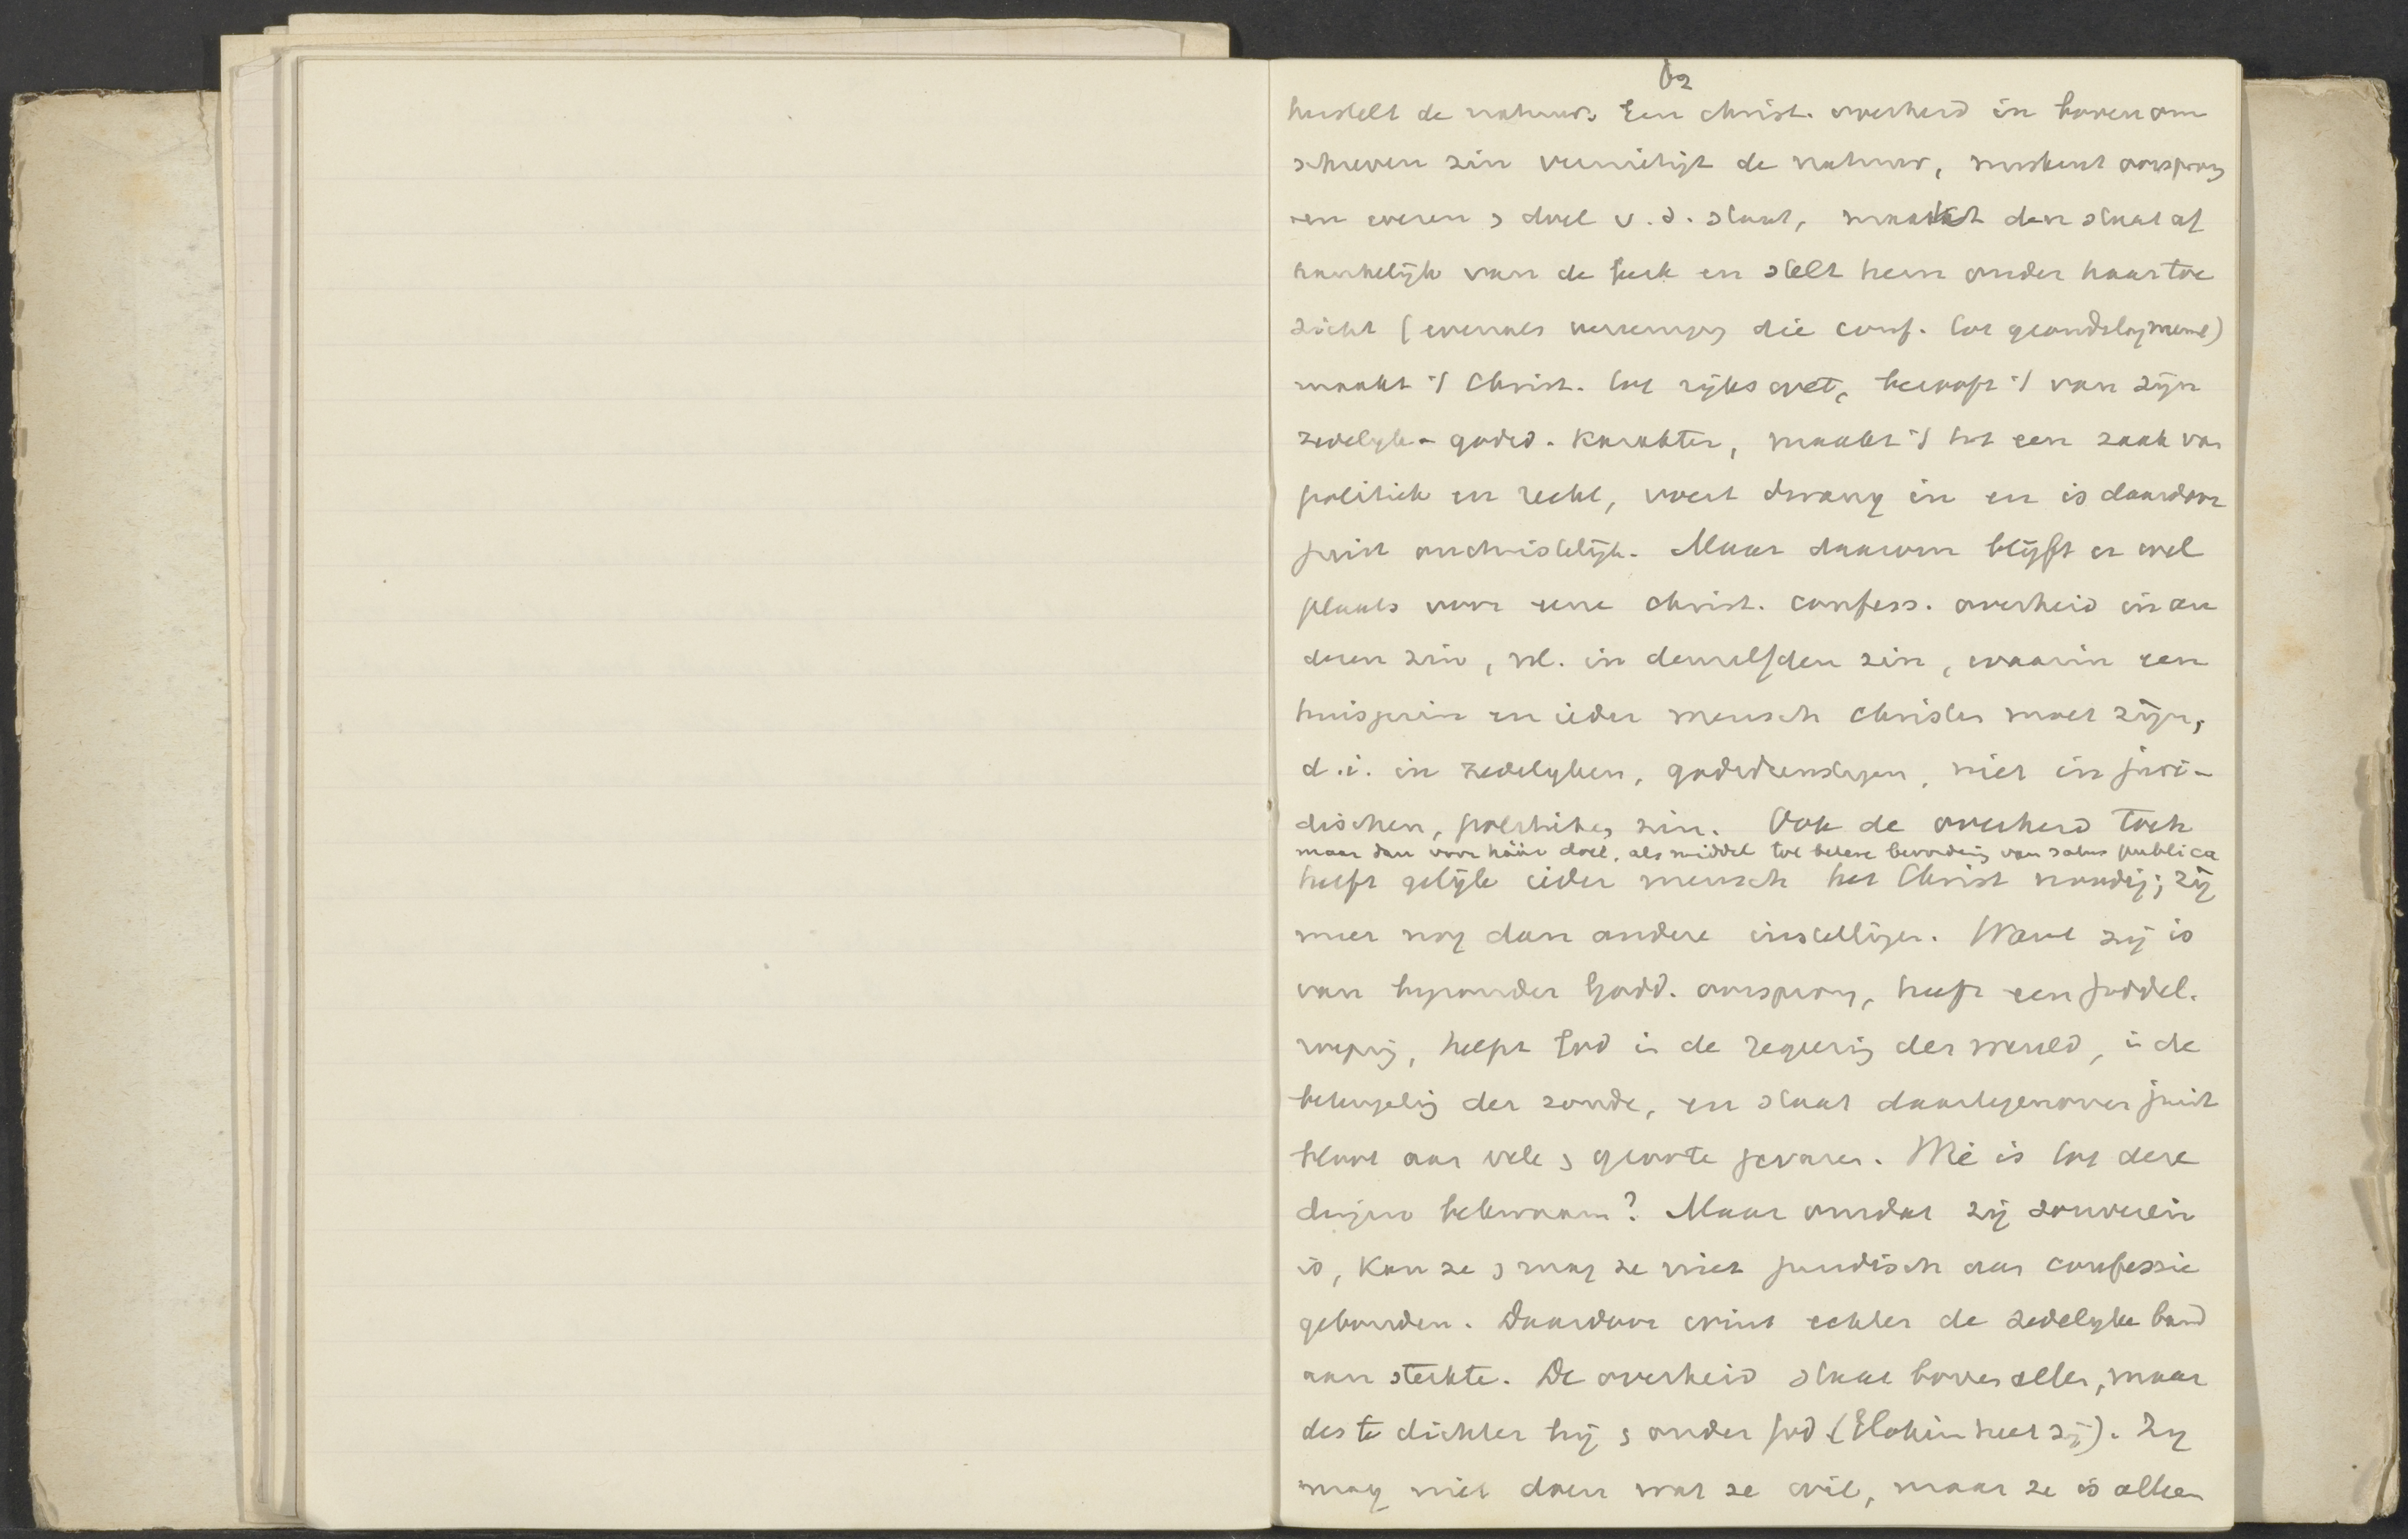 62
herstelt de natuur. Een christ. overheid in boven om
schreven zin vernietigt de natuur, miskent oorsprong
en wezen & doel v. d. staat, maakt den staat af
hankelijk van de kerk en stelt hem onder haar toe
zicht (evenals vereeniging die conf. tot grondslag neemt)
maakt 't Christ. tot rijkswet, berooft 't van zijn
zedelijk-godsd. karakter, maakt 't tot een zaak van
politiek en recht, voert dwang in en is daardoor
juist onchristelijk. Maar daarom blijft er wel
plaats voor eene christ. confess. overheid in an
deren zin, nl. in denzelfden zin, waarin een
huisgezin en ieder mensch christen moet zijn,
d.i. in zedelijken, godsdienstigen, niet in juri-
dischen, politieken zin. Ook de overheid toch
maar dan voor háár doel, als middel tot betere bevordering van salus publica
heeft gelijk ieder mensch het Christ noodig; zij
meer nog dan andere instellingen. Want zij is
van bijzonder Godd. oorsprong, heeft een goddel.
roeping, helpt God in de regeering der wereld, in de
beteugeling der zonde, en staat daartegenover juist
bloot aan vele & groote gevaren. Wie is tot deze
dingen bekwaam? Maar omdat zij souverein
is, kan ze & mag ze niet juridisch aan confessie
gebonden. Daardoor wint echter de zedelijke band
aan sterkte. De overheid staat boven allen, maar
des te dichter bij & onder God (Elohim heet zij). Zij
mag niet doen wat ze wil, maar ze is alleen